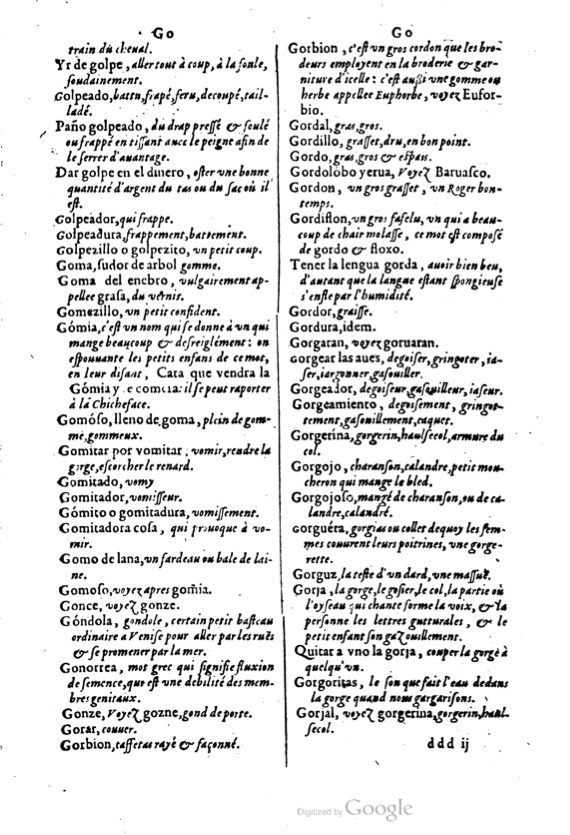 Go
train du cheual.
Yr de golpe, aller tout à coup, à la foule,
soudainement.
Golpeado, battu, frapé, feru, decoupé, tail-
ladé.
Paño golpeado, du drap pressé & foulé
ou frappé en tissant auec le peigne afin de
le serrer d'auantage.
Dar golpe en el dinero, oster vne bonne
quantité d'argent du tas ou du sac où il
est.
Golpeador, qui frappe.
Golpeadura, frappement, battement.
Golpezillo o golpezito, vn petit coup.
Goma, sudor de arbol gomme.
Goma del enebro, vulgairement ap-
pellee grasa, du vernis.
Gomezillo, vn petit confident.
Gómia, c'est vn nom qui se donne à vn qui
mange beaucoup & desreiglément: on
espouuante les petits enfans de ce mot,
en leur disant, Cata que vendra la
Gómia y te comerá: il se peut raporter
à la Chicheface.
Gomóso, lleno de goma, plein de gom-
me, gommeux.
Gomitar por vomitar, vomir, rendre la
gorge, escorcher le renard.
Gomitado, vomy
Gomitador, vomisseur.
Gómito o gomitadura, vomissement.
Gomitadora cosa, qui prouoque à vo-
mir.
Gomo de lana, vn fardeau ou bale de lai-
ne.
Gomoso, voyez apres gomia.
Gonce, voyez gonze.
Góndola, gondole, certain petit basteau
ordinaire a Venise pour aller par les ruës
& se promener par la mer.
Gonorrea, mot grec qui signifie fluxion
de semence, qui est vne debilité des mem-
bres genitaux.
Gonze, Voyez gozne, gond de porte.
Gorar, couuer.
Gorbion, taffetas rayé & façonné.
Go
Gorbion, c'est vn gros cordon que les bro-
deurs employent en la broderie & gar-
niture d'icelle: c'est aussi vne gomme ou
herbe appellee Euphorbe, voyez Eufor-
bio.
Gordal, gras, gros.
Gordillo, grasset, dru, en bon point.
Gordo, gras, gros & espass.
Gordolobo yerua, Voyez Baruasco.
Gordon, vn gros grasset, vn Roger bon-
temps.
Gordiflon, vn gros fafelu, vn qui a beau-
coup de chair molasse, ce mot est composé
de gordo & floxo.
Tener la lengua gorda, auoir bien beu,
d'autant que la langue estant spongieuse
s'enfle par l'humidité.
Gordor, graisse.
Gordura, idem.
Gorgaran, voyez goruaran.
Gorgear las aues, degoiser, gringoter, ia-
ser, iargonner, gasouiller.
Gorgeador, degoiseur, gasouilleur, iaseur.
Gorgeamiento, degoisement, gringot-
tement, gasouillement, caquet.
Gorgerina, gorgerin, haulsecol, armure du
col.
Gorgojo, charanson, calandre, petit mou-
cheron qui mange le bled.
Gorgojoso, mangé de charanson, ou de ca-
landre, calandré.
Gorguéra, gorgias ou collet dequoy les fem-
mes couurent leurs poitrines, vne gorge-
rette.
Gorguz, la teste d'vn dard, vne massuë.
Gorja, la gorge, le gosier, le col, la partie où
l'oyseau qui chante forme la voix, & la
personne les lettres gutturales, & le
petit enfant son gazouillement.
Quitar a vno la gorja, couper la gorge à
quelqu'vn.
Gorgoritas, le son que fait l'eau dedans
la gorge quand nous gargarisons.
Gorjal, voyez gorgerina, gorgerin, haul-
secol.
ddd ij
Digitized by Google